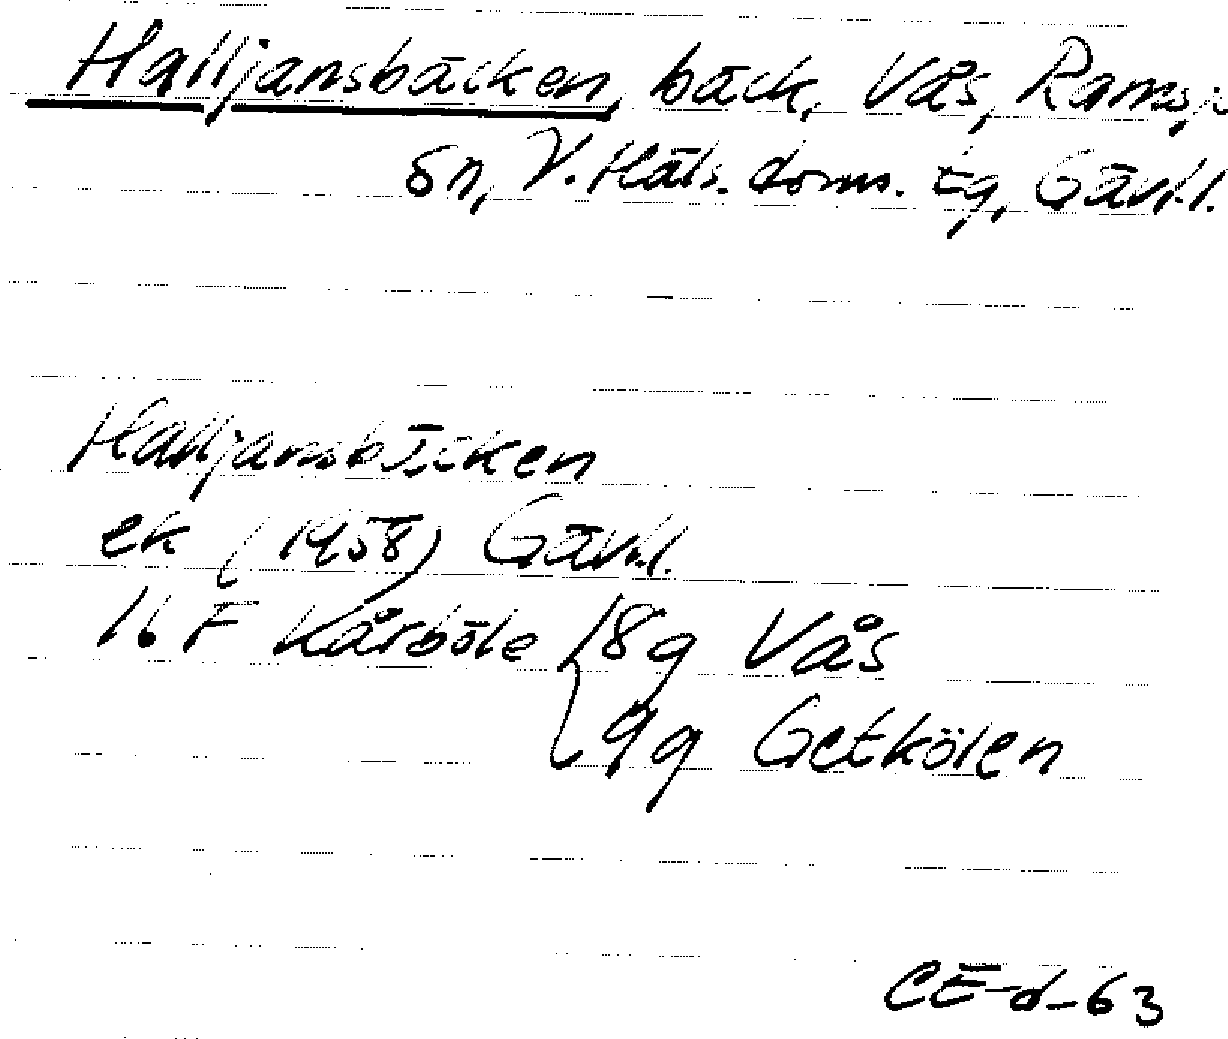 Halljansbäcken, bäck, Vås, Ramsjö
sn, V. Häls. doms. tg, Gävl.l.
Halljansbäcken
ek (1958) Gävl.l.
16 F Kårböle { 8g Vås
9g Getkölen
CE-d-63